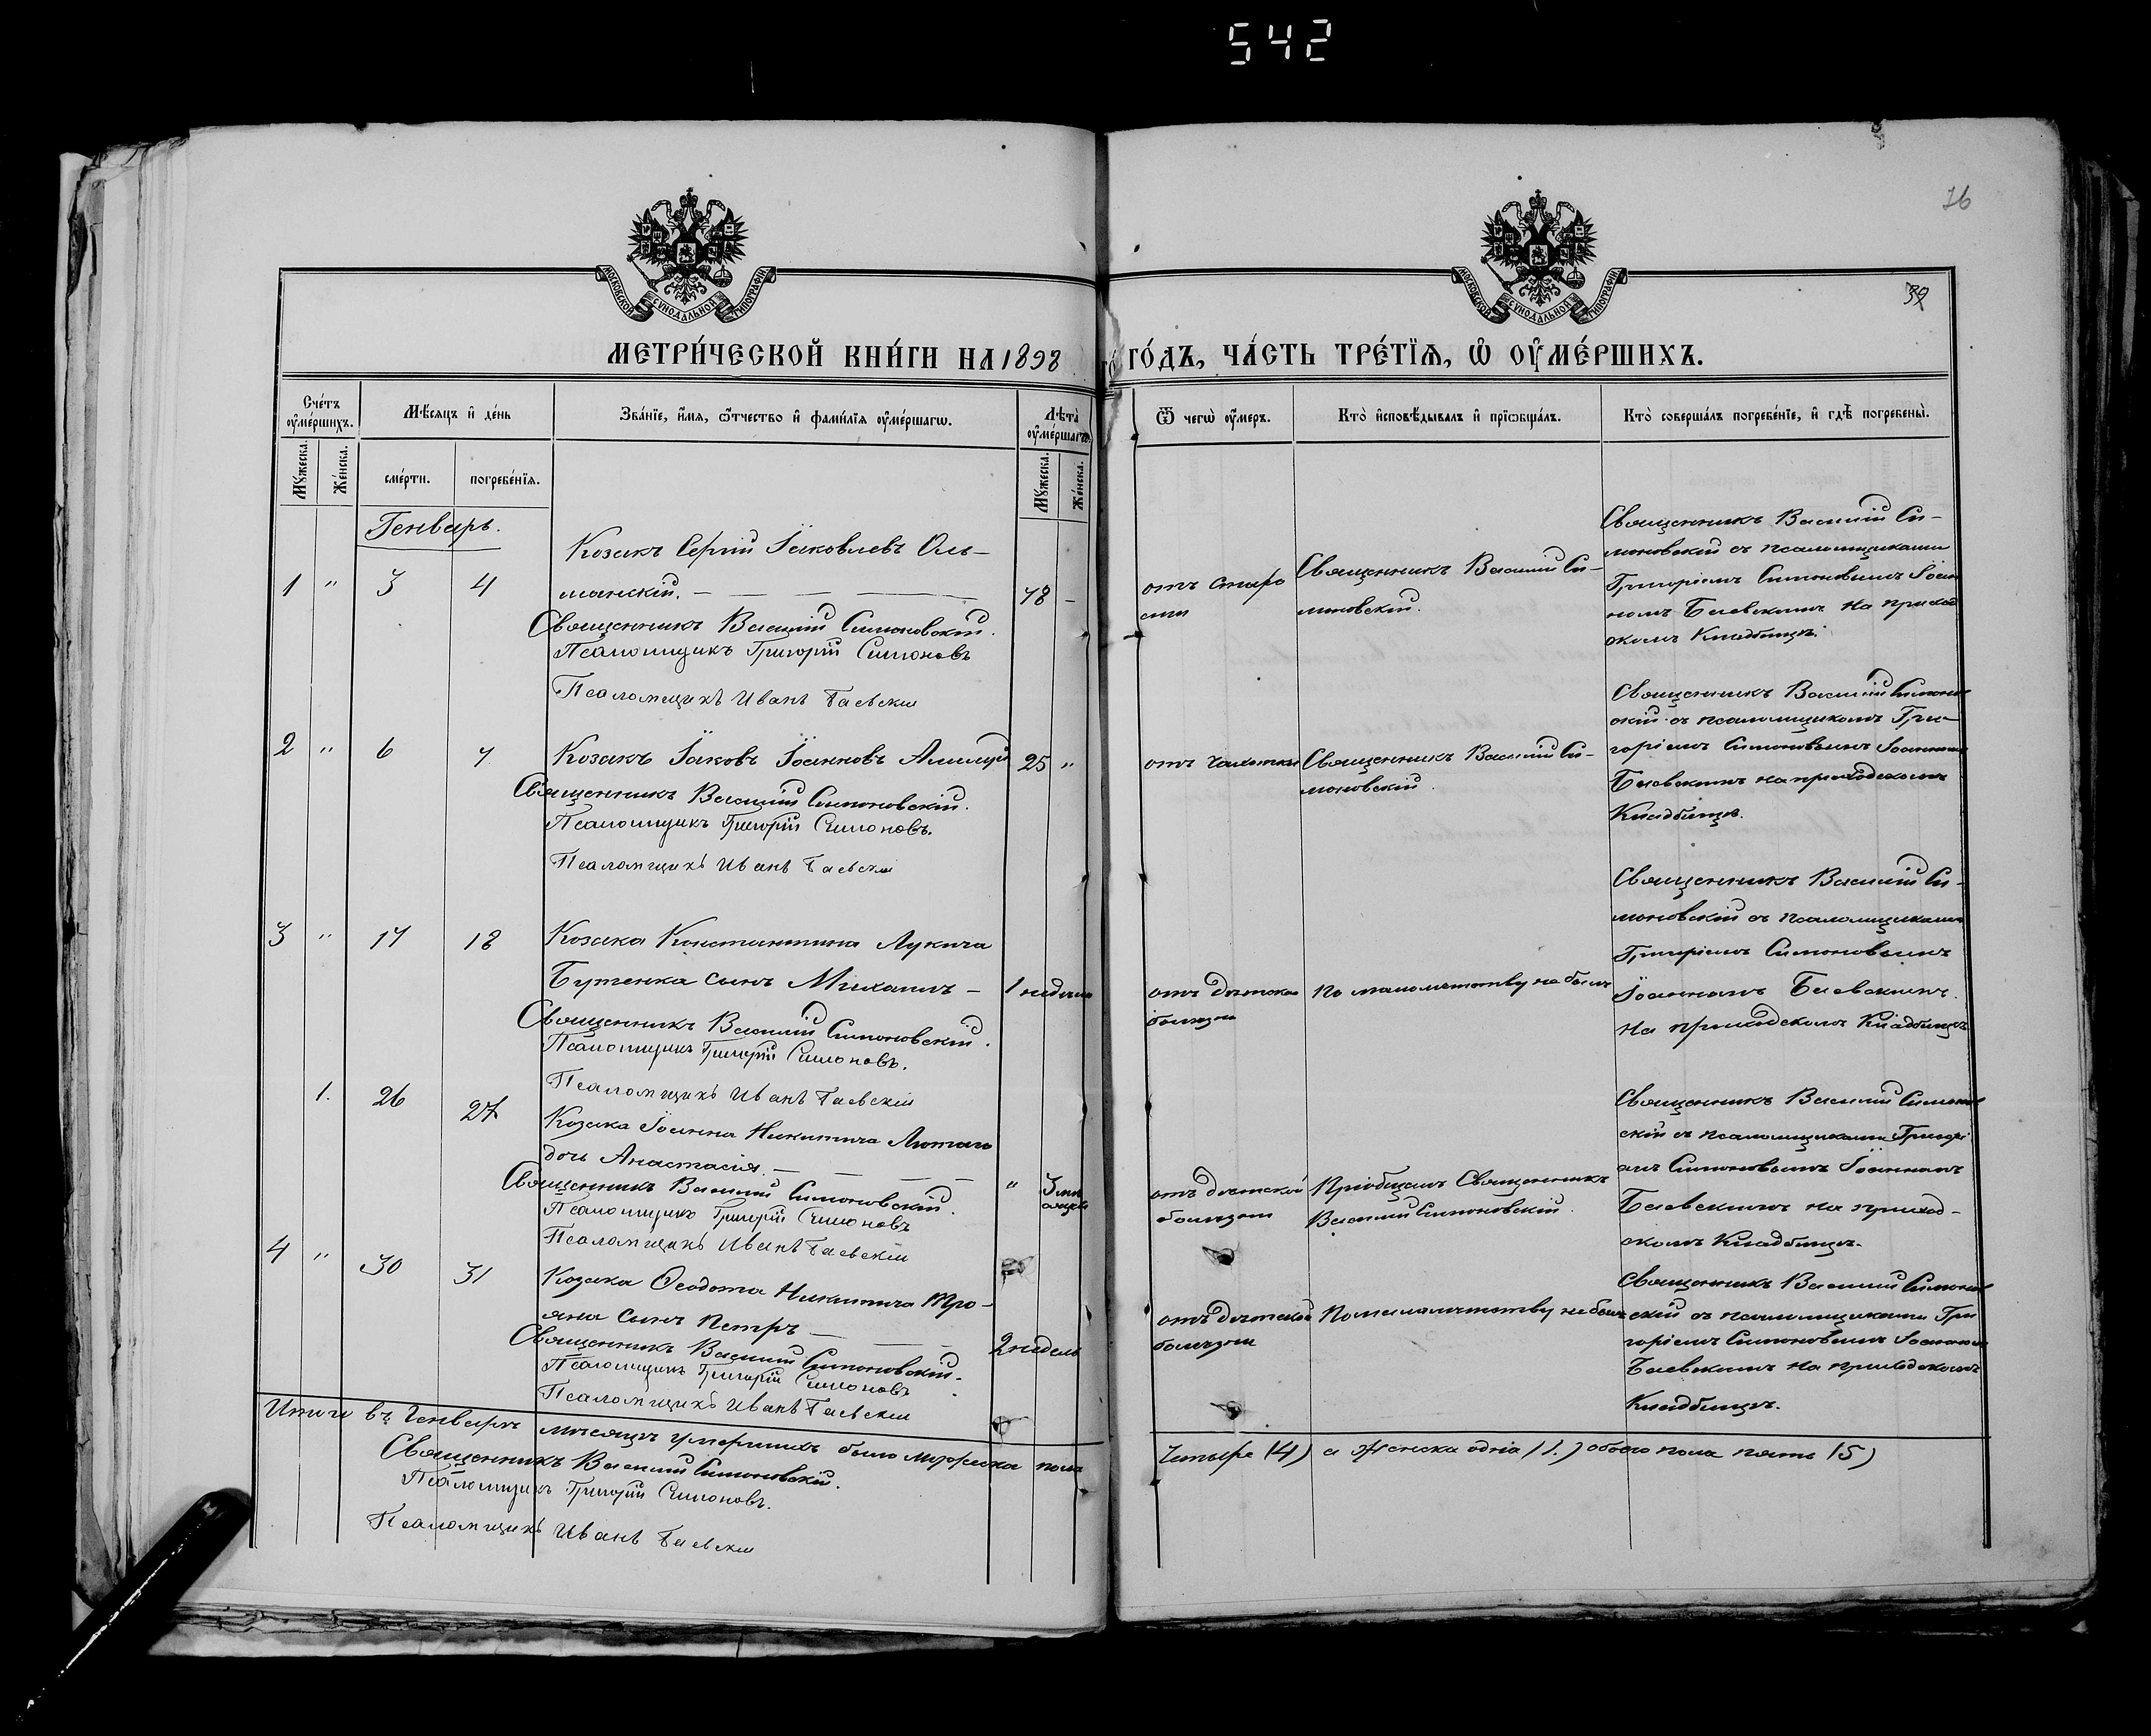 542
76
39
МОСКОВСКОЙ СѴНОДАЛЬНОЙ ТИПОГРАФІИ
МОСКОВСКОЙ СѴНОДАЛЬНОЙ ТИПОГРАФІИ
МЕТРИ́ЧЕСКОЙ КНИ́ГИ НА 1898
ГО́ДЪ, ЧА́СТЬ ТРЕ́ТЇѦ, Ѡ ОУ҆МЕ́РШИХЪ.
Сче́тъ оу҆ме́ршихъ.
Мѣ́сяцъ и҆ де́нь
Зва́нїе, и҆́мя, ѻ҆́тчество и҆ фами́лїя оу҆ме́ршагѡ.
Лѣта̀ оу҆ме́ршагѡ.
Ѿ чегѡ̀ оу҆́меръ.
Кто̀ и҆сповѣ́дывалъ и҆ прїѡбща́лъ.
Кто̀ соверша́лъ погребе́нїе, и҆ гдѣ̀ погребены̀.
Мꙋ́жеска.
Же́нска.
сме́рти.
погребе́нїя.
Мꙋ́жеска.
Же́нска.
Генварь.
1 " 3 4
Козакъ Сергій Іаковлевъ Оль-
манскій. —
78 -
Священникъ Василій Симоновскій.
Псаломщикъ Григорій Симоновъ
Псаломщикъ Иванъ Баевскій
отъ старо
сти
Священникъ Василій Си-
моновскій.
Священникъ Василій Си-
моновскій съ псаломщиками
Григоріемъ Симоновымъ Іоан
номъ Баевскимъ на приход
скомъ Кладбищѣ.
2 " 6 7
Козакъ Іаковъ Іоанновъ
25 "
Священникъ Василій Симоновскій.
Псаломщикъ Григорій Симоновъ.
Псаломщикъ Иванъ Баевскій
отъ чахотки
Священникъ Василій Си-
моновскій.
Священникъ Василій Симонов
скій съ псаломщикомъ Гри-
горіемъ Симоновымъ Іоанномъ
Баевскимъ на приходскомъ
Кладбищѣ.
3 " 17 18
Козака Константина Лукича
Бутенка сынъ Михаилъ —
1 недѣли
Священникъ Василій Симоновскій.
Псаломщикъ Григорій Симоновъ.
Псаломщикъ Иванъ Баевскій
отъ дѣтской
болѣзни
По малолѣтству не былъ
Священникъ Василій Си-
моновскій съ псаломщиками
Григоріемъ Симоновымъ
Іоанномъ Баевскимъ
на приходскомъ Кладбищѣ
1. 26 27
Козака Іоанна Никитича Лютаго
дочь Анастасія. —
" 3 мѣ
сяцев
Священникъ Василій Симоновскій.
Псаломщикъ Григорій Симоновъ
Псаломщикъ Иванъ Баевскій
отъ дѣтской
болѣзни
Пріобщалъ Священникъ
Василій Симоновскій.
Священникъ Василій Симонов
скій съ псаломщиками Григорі
емъ Симоновымъ Іоанномъ
Баевскимъ на приход-
скомъ Кладбищѣ.
4 " 30 31
Козака Ѳеодота Никитича Тро-
яна сынъ Петръ —
2 недель
Священникъ Василій Симоновскій.
Псаломщикъ Григорій Симоновъ
Псаломщикъ Иванъ Баевскій
отъ дѣтской
болѣзни
По малолѣтству не былъ
Священникъ Василій Симонов
скій съ псаломщиками Гри
горіемъ Симоновымъ Іоанномъ
Баевскимъ на приходскомъ
Кладбищѣ.
Итого въ Генварѣ мѣсяцѣ умершихъ было мужеска пола
Четыре (4) а Женска одна (1.) обоего пола пять (5)
Священникъ Василій Симоновскій.
Псаломщикъ Григорій Симоновъ.
Псаломщикъ Иванъ Баевскій